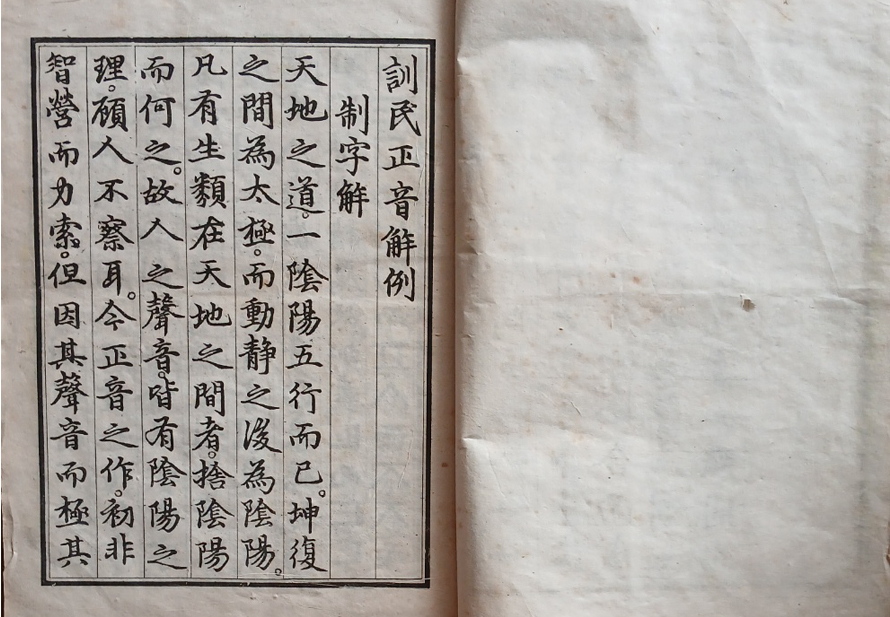 訓民正音解例
制字解
天地之道。一陰陽五行而已。坤復
之間為太極。而動静之後為陰陽。
凡有生類在天地之間者。捨陰陽
而何之。故人之聲音。皆有陰陽之
理。顧人不察耳。今正音之作。初非
智營而力索。但因其聲音而極其